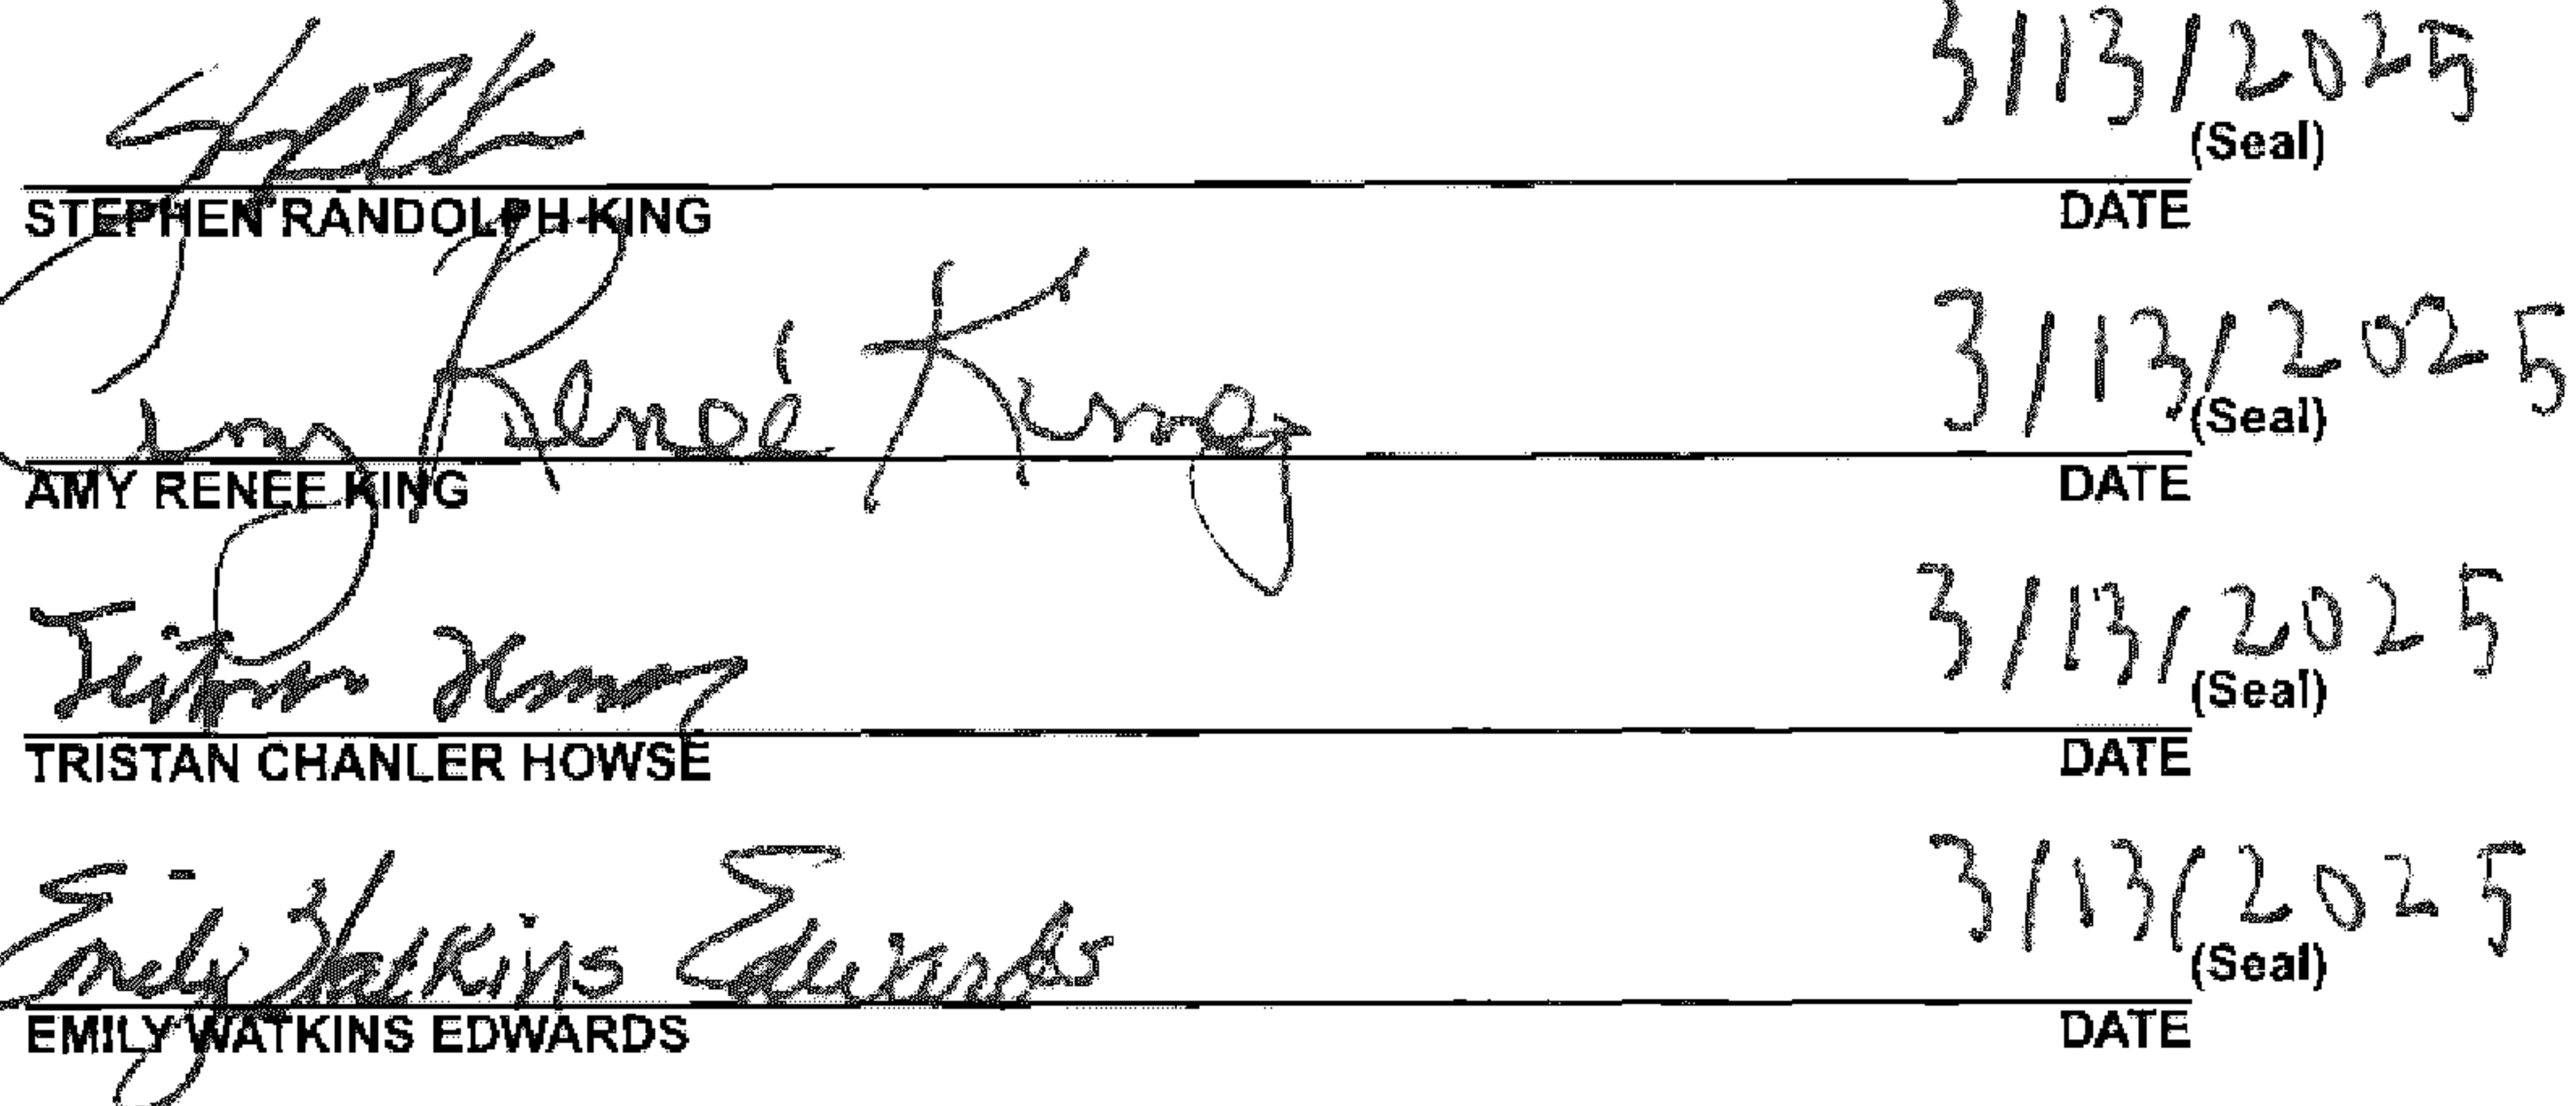 3/13/2025
(Seal)
STEPHEN RANDOLPH KING DATE
Amy Reneé King 3/13/2025
(Seal)
AMY RENEE KING DATE
Tristan 3/13/2025
(Seal)
TRISTAN CHANLER HOWSE DATE
Emily Watkins Edwards 3/13/2025
(Seal)
EMILY WATKINS EDWARDS DATE